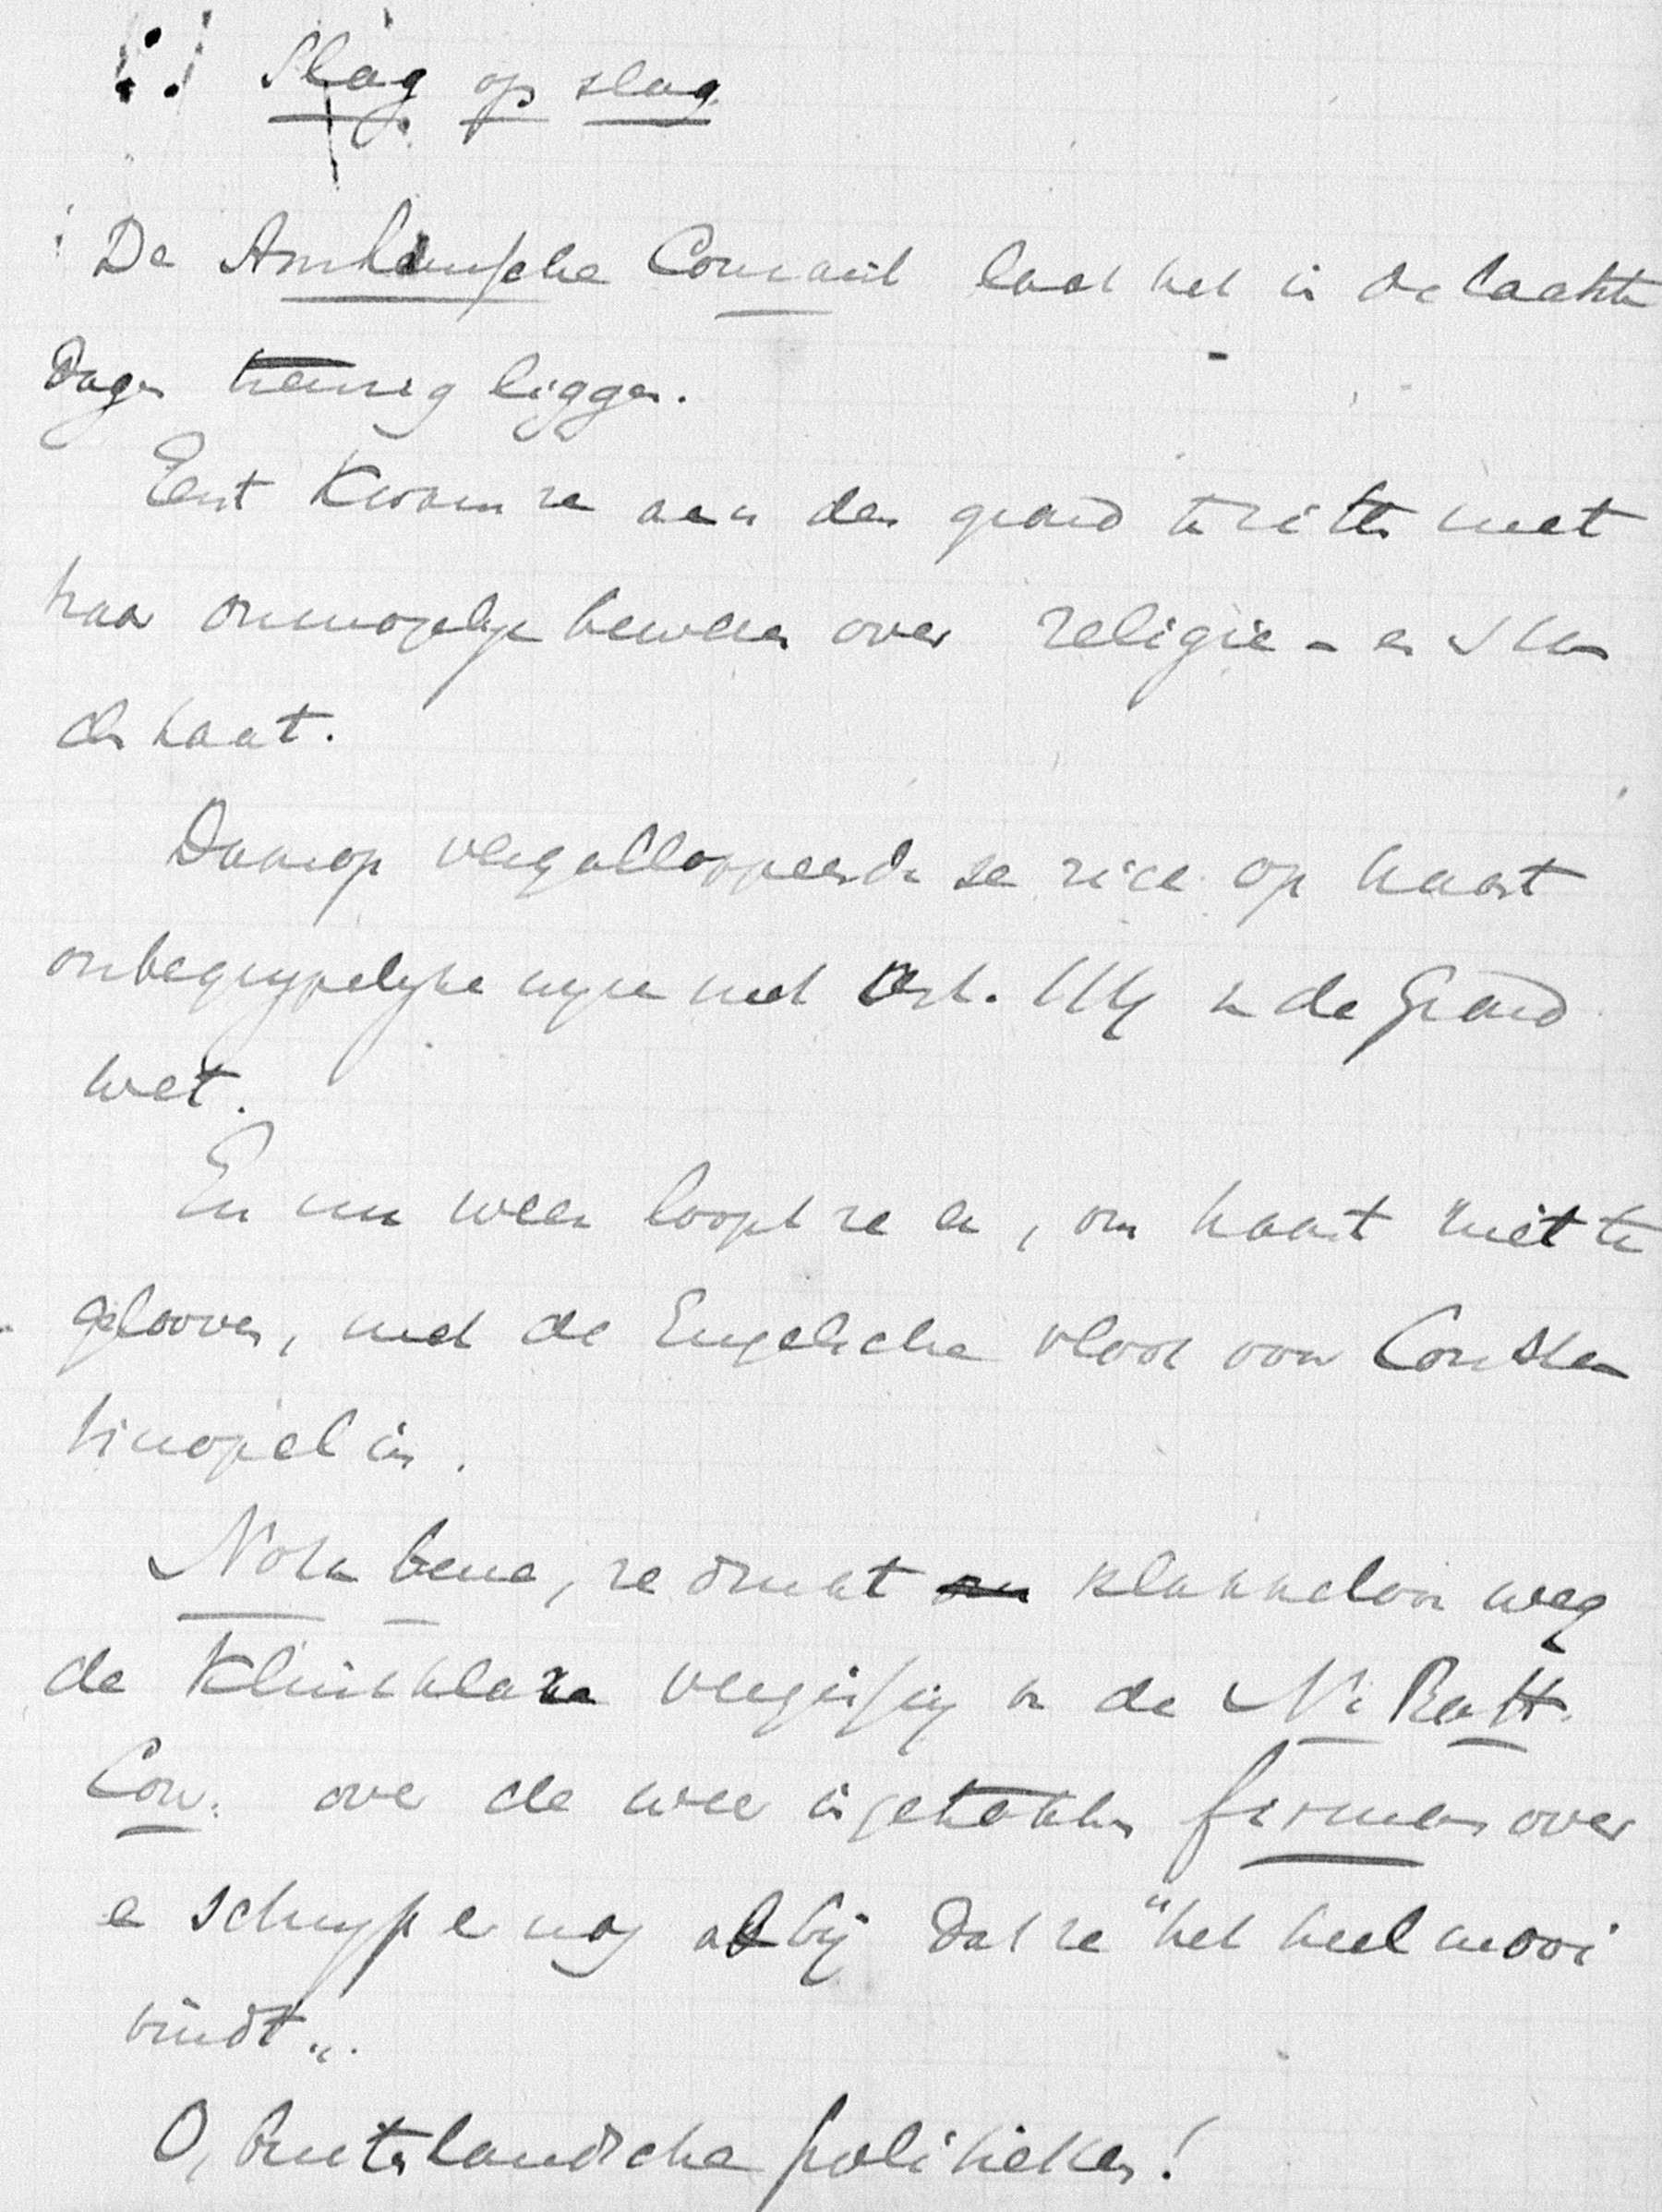 Slag op slag
De Arnhemsche Courant laat het in de laatste
dagen treurig liggen.
Eerst kwam ze aan den grond te zitten met
haar onmogelijk beweren over religie- en ster
den haat.
Daarop vergalloppeerde ze zich op haast
onbegrijpelijke wijze met Art. in de Grond
wet.
En nu weer loopt ze er, om haast niet te
gelooven, met de Engelsche vloot voor Constan
tinopel in.
Nota bene, ze drukt klakkeloos weg
de klinkklare vergissing in de N. Rott.
Cou. over de weer ingetrokken firmans over
e schrijft er nog al bij dat ze "het heel mooi
vindt".
O, buitenlandsche politieken!